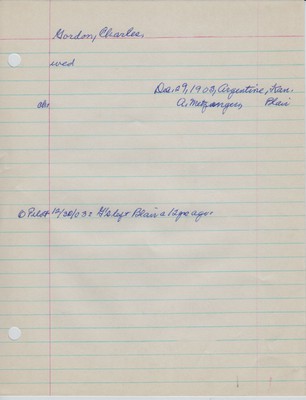 Gordon, Charles
wed
Dec. 29, 1903, Argentine, Kan.
A. Metzanger, Blair
Pilot 12/30/03: G's left Blair a 12 yrs ago.